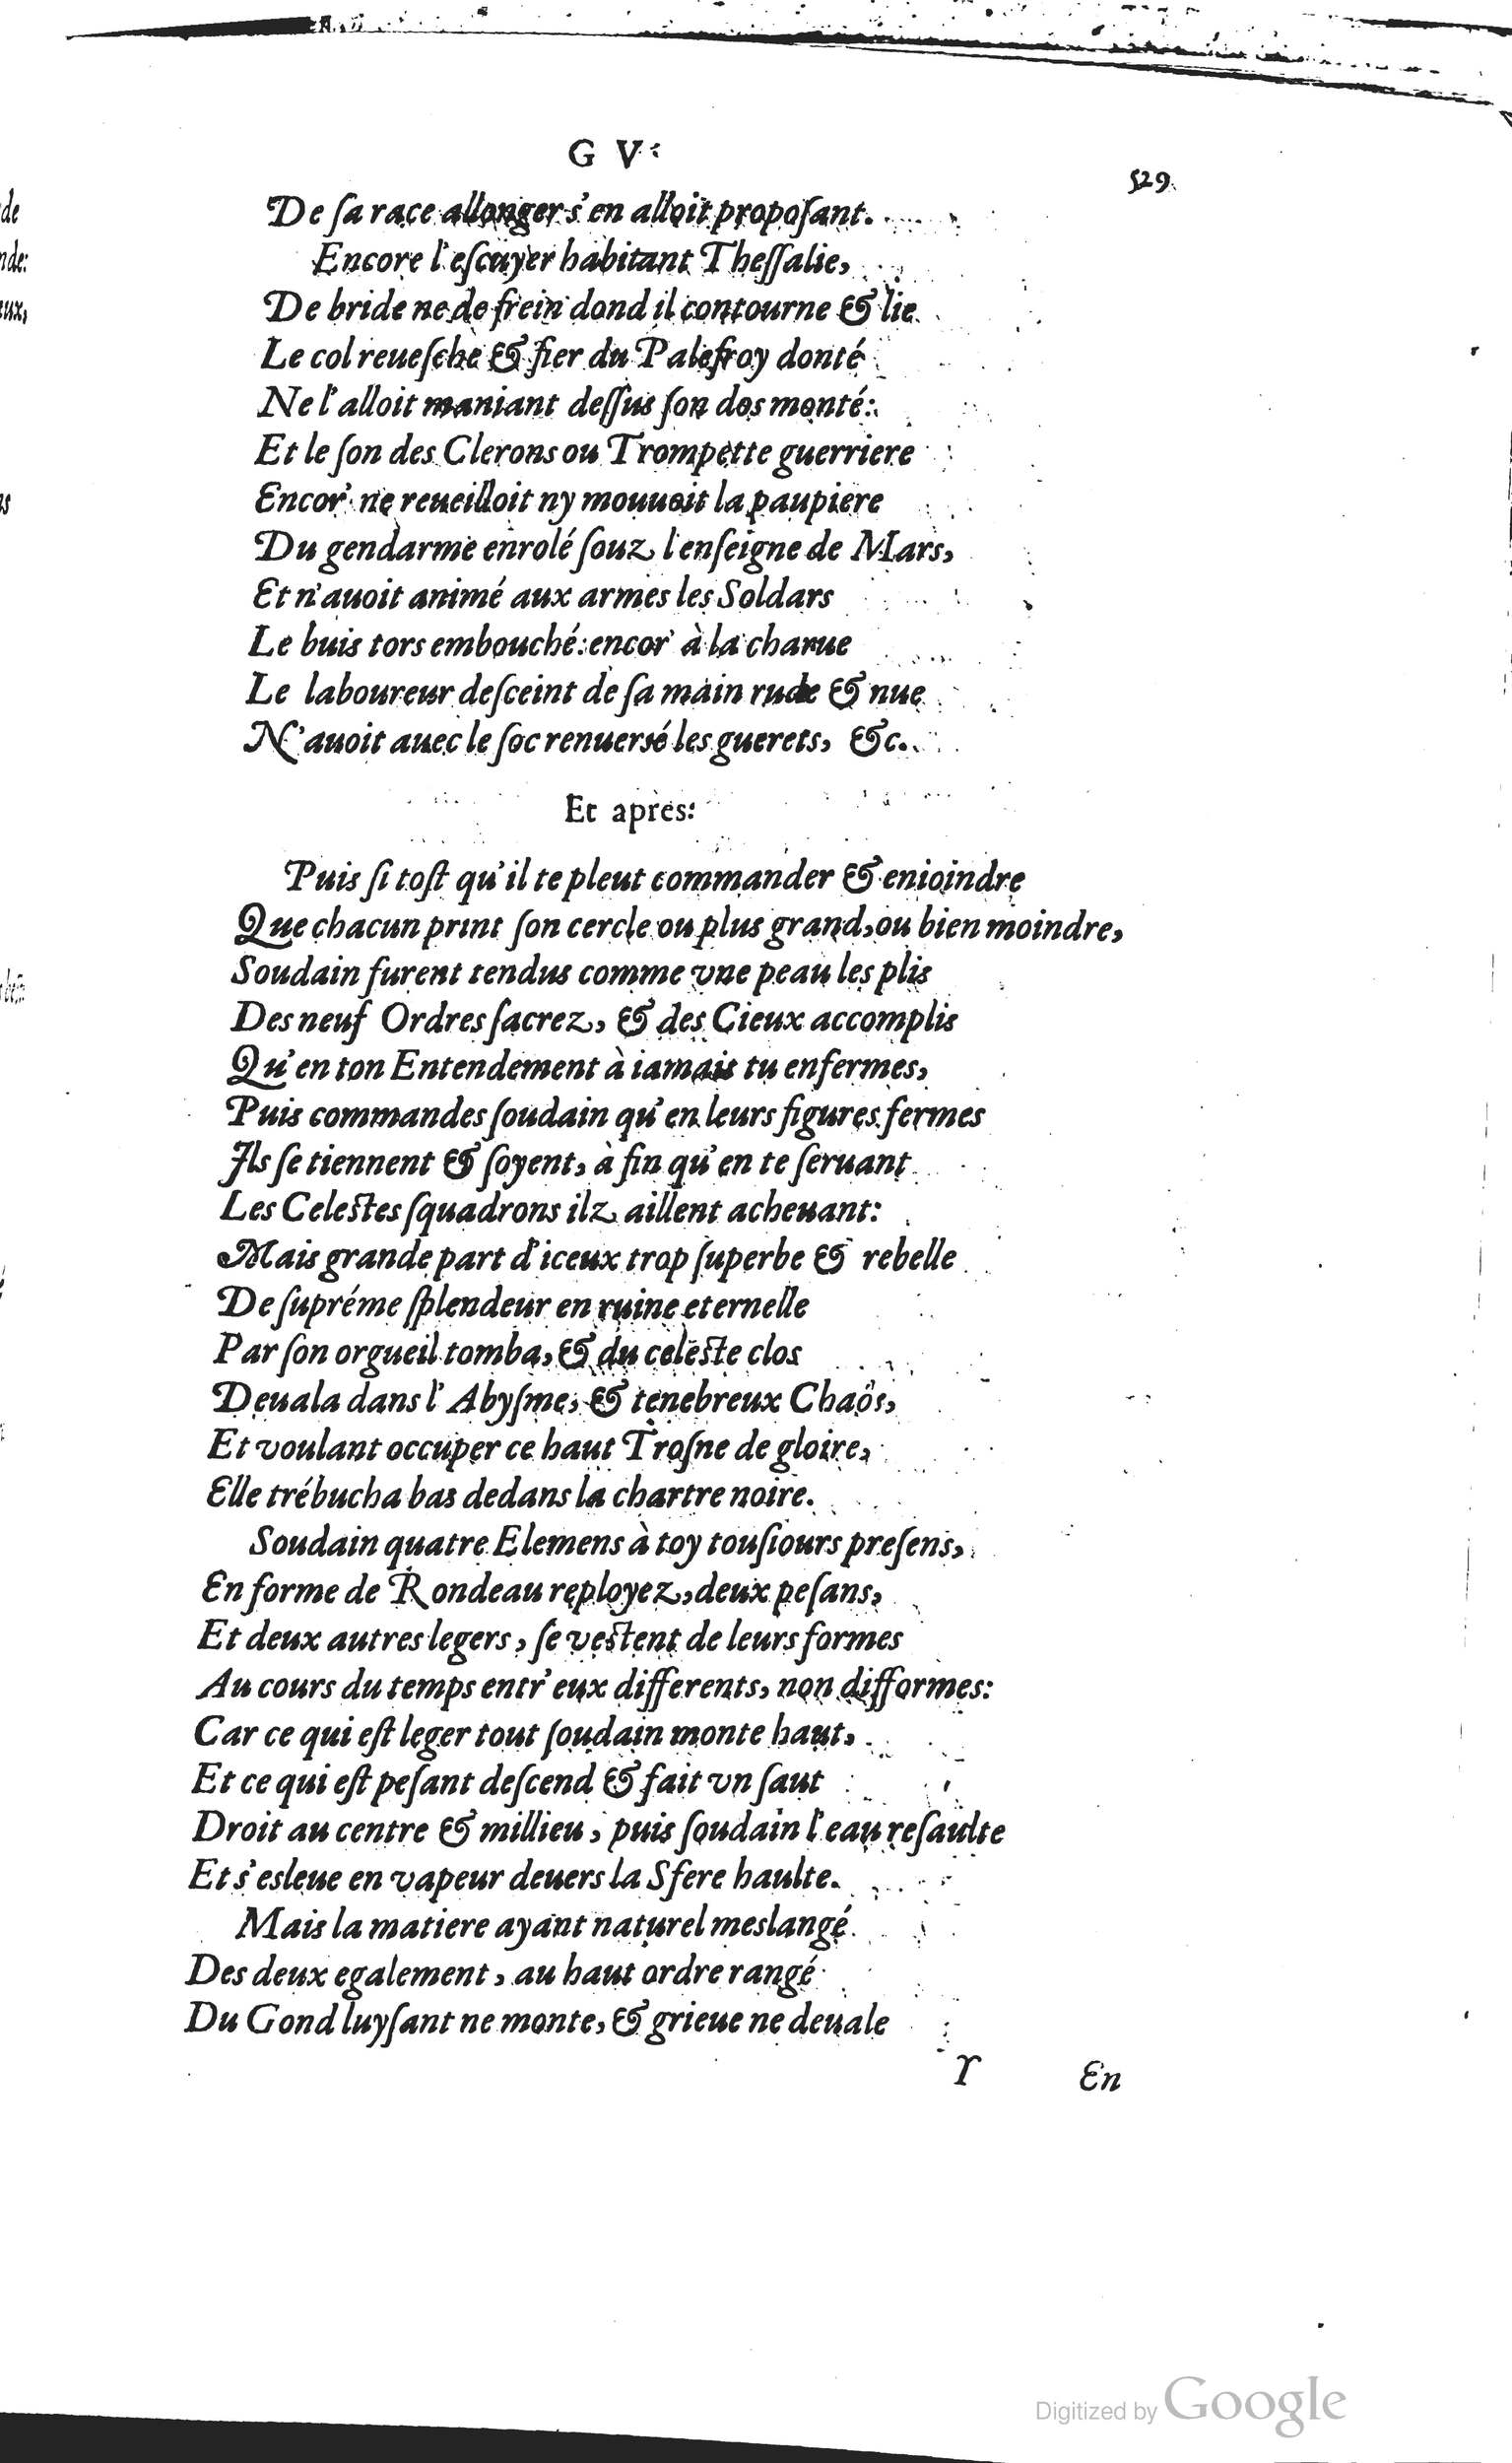 G V.
529
De ſa race allonger s'en alloit propoſant.
Encore l'eſcuyer habitant Theſſalie,
De bride ne de frein dond il contourne & lie
Le col reueſche & fier du Palefroy donté
Ne l'alloit maniant deſſus ſon dos monté:
Et le ſon des Clerons ou Trompette guerriere
Encor' ne reueilloit ny mouuoit la paupiere
Du gendarme enrolé ſouz l'enſeigne de Mars,
Et n'auoit animé aux armes les Soldars
Le buis tors embouché: encor' à la charue
Le laboureur deſceint de ſa main rude & nue
N'auoit auec le ſoc renuersé les guerets, &c.
Et apres:
Puis ſi toſt qu'il te pleut commander & enioindre
Que chacun print ſon cercle ou plus grand, ou bien moindre,
Soudain furent tendus comme vne peau les plis
Des neuf Ordres ſacrez, & des Cieux accomplis
Qu'en ton Entendement à iamais tu enfermes,
Puis commandes ſoudain qu'en leurs figures fermes
Ils ſe tiennent & ſoyent, à fin qu'en te ſeruant
Les Celeſtes ſquadrons ilz aillent acheuant:
Mais grande part d'iceux trop ſuperbe & rebelle
De ſupréme ſplendeur en ruine eternelle
Par ſon orgueil tomba, & du celeſte clos
Deuala dans l'Abyſme, & tenebreux Chaôs,
Et voulant occuper ce haut Troſne de gloire,
Elle trébucha bas dedans la chartre noire.
Soudain quatre Elemens à toy touſiours preſens,
En forme de Rondeau reployez, deux peſans,
Et deux autres legers, ſe veſtent de leurs formes
Au cours du temps entr'eux differents, non difformes:
Car ce qui eſt leger tout ſoudain monte haut,
Et ce qui eſt peſant deſcend & fait vn ſaut
Droit au centre & millieu, puis ſoudain l'eau reſaulte
Et s'esleue en vapeur deuers la Sfere haulte.
Mais la matiere ayant naturel meslangé
Des deux egalement, au haut ordre rangé
Du Gond luyſant ne monte, & grieue ne deuale
Y En
Digitized by Google